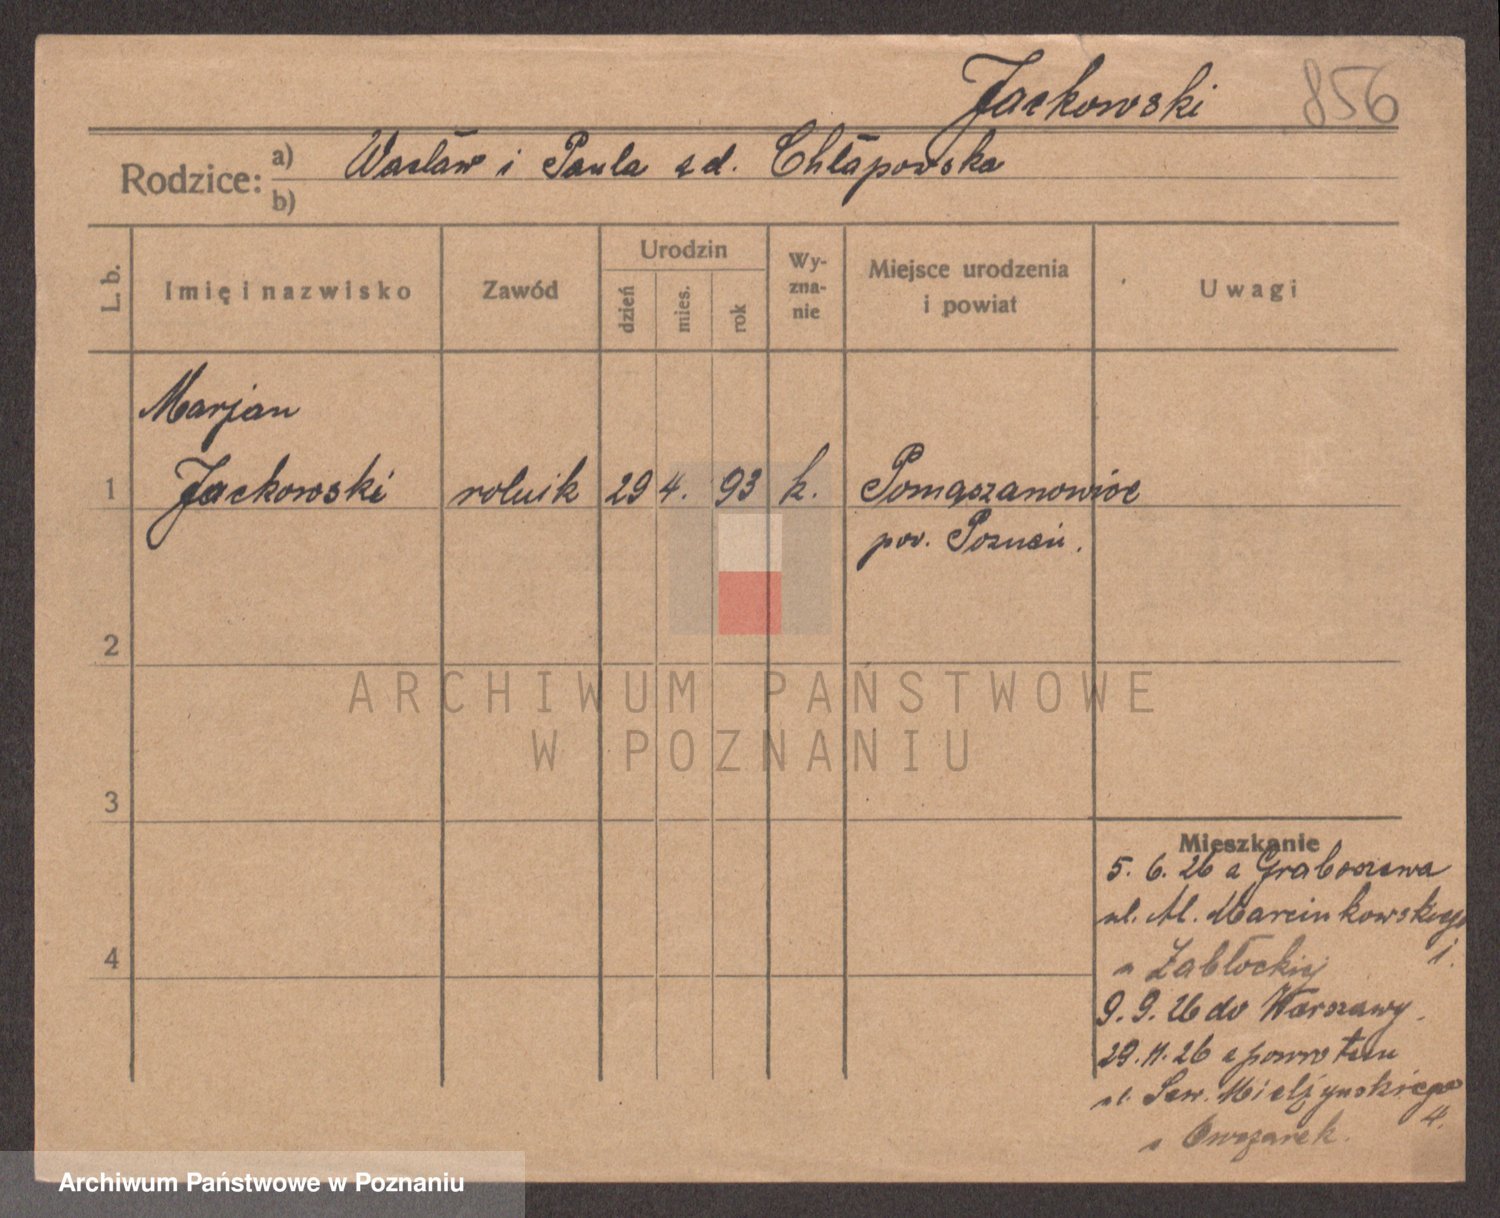 Jackowski 856
Rodzice: a) Wacław i Paula zd. Chłapowska
b)
L. b.
Imię i nazwisko
Zawód
Urodzin
dzień
mies.
rok
Wy-
zna-
nie
Miejsce urodzenia
i powiat
Uwagi
Marjan
1 Jackowski rolnik 29 4. 93 k. Pomarzanowice
pow. Poznań.
2
3
4
Mieszkanie
5. 6. 26 z Graboszewa
ul. Al. Marcinkowskiego
1.
u Zabłockiej
9. 9. 26 do Warszawy.
29. 11. 26 z powrotem
ul. Sew. Mielżyńskiego
4.
u Owczarek.
ARCHIWUM PAŃSTWOWE
W POZNANIU
Archiwum Państwowe w Poznaniu